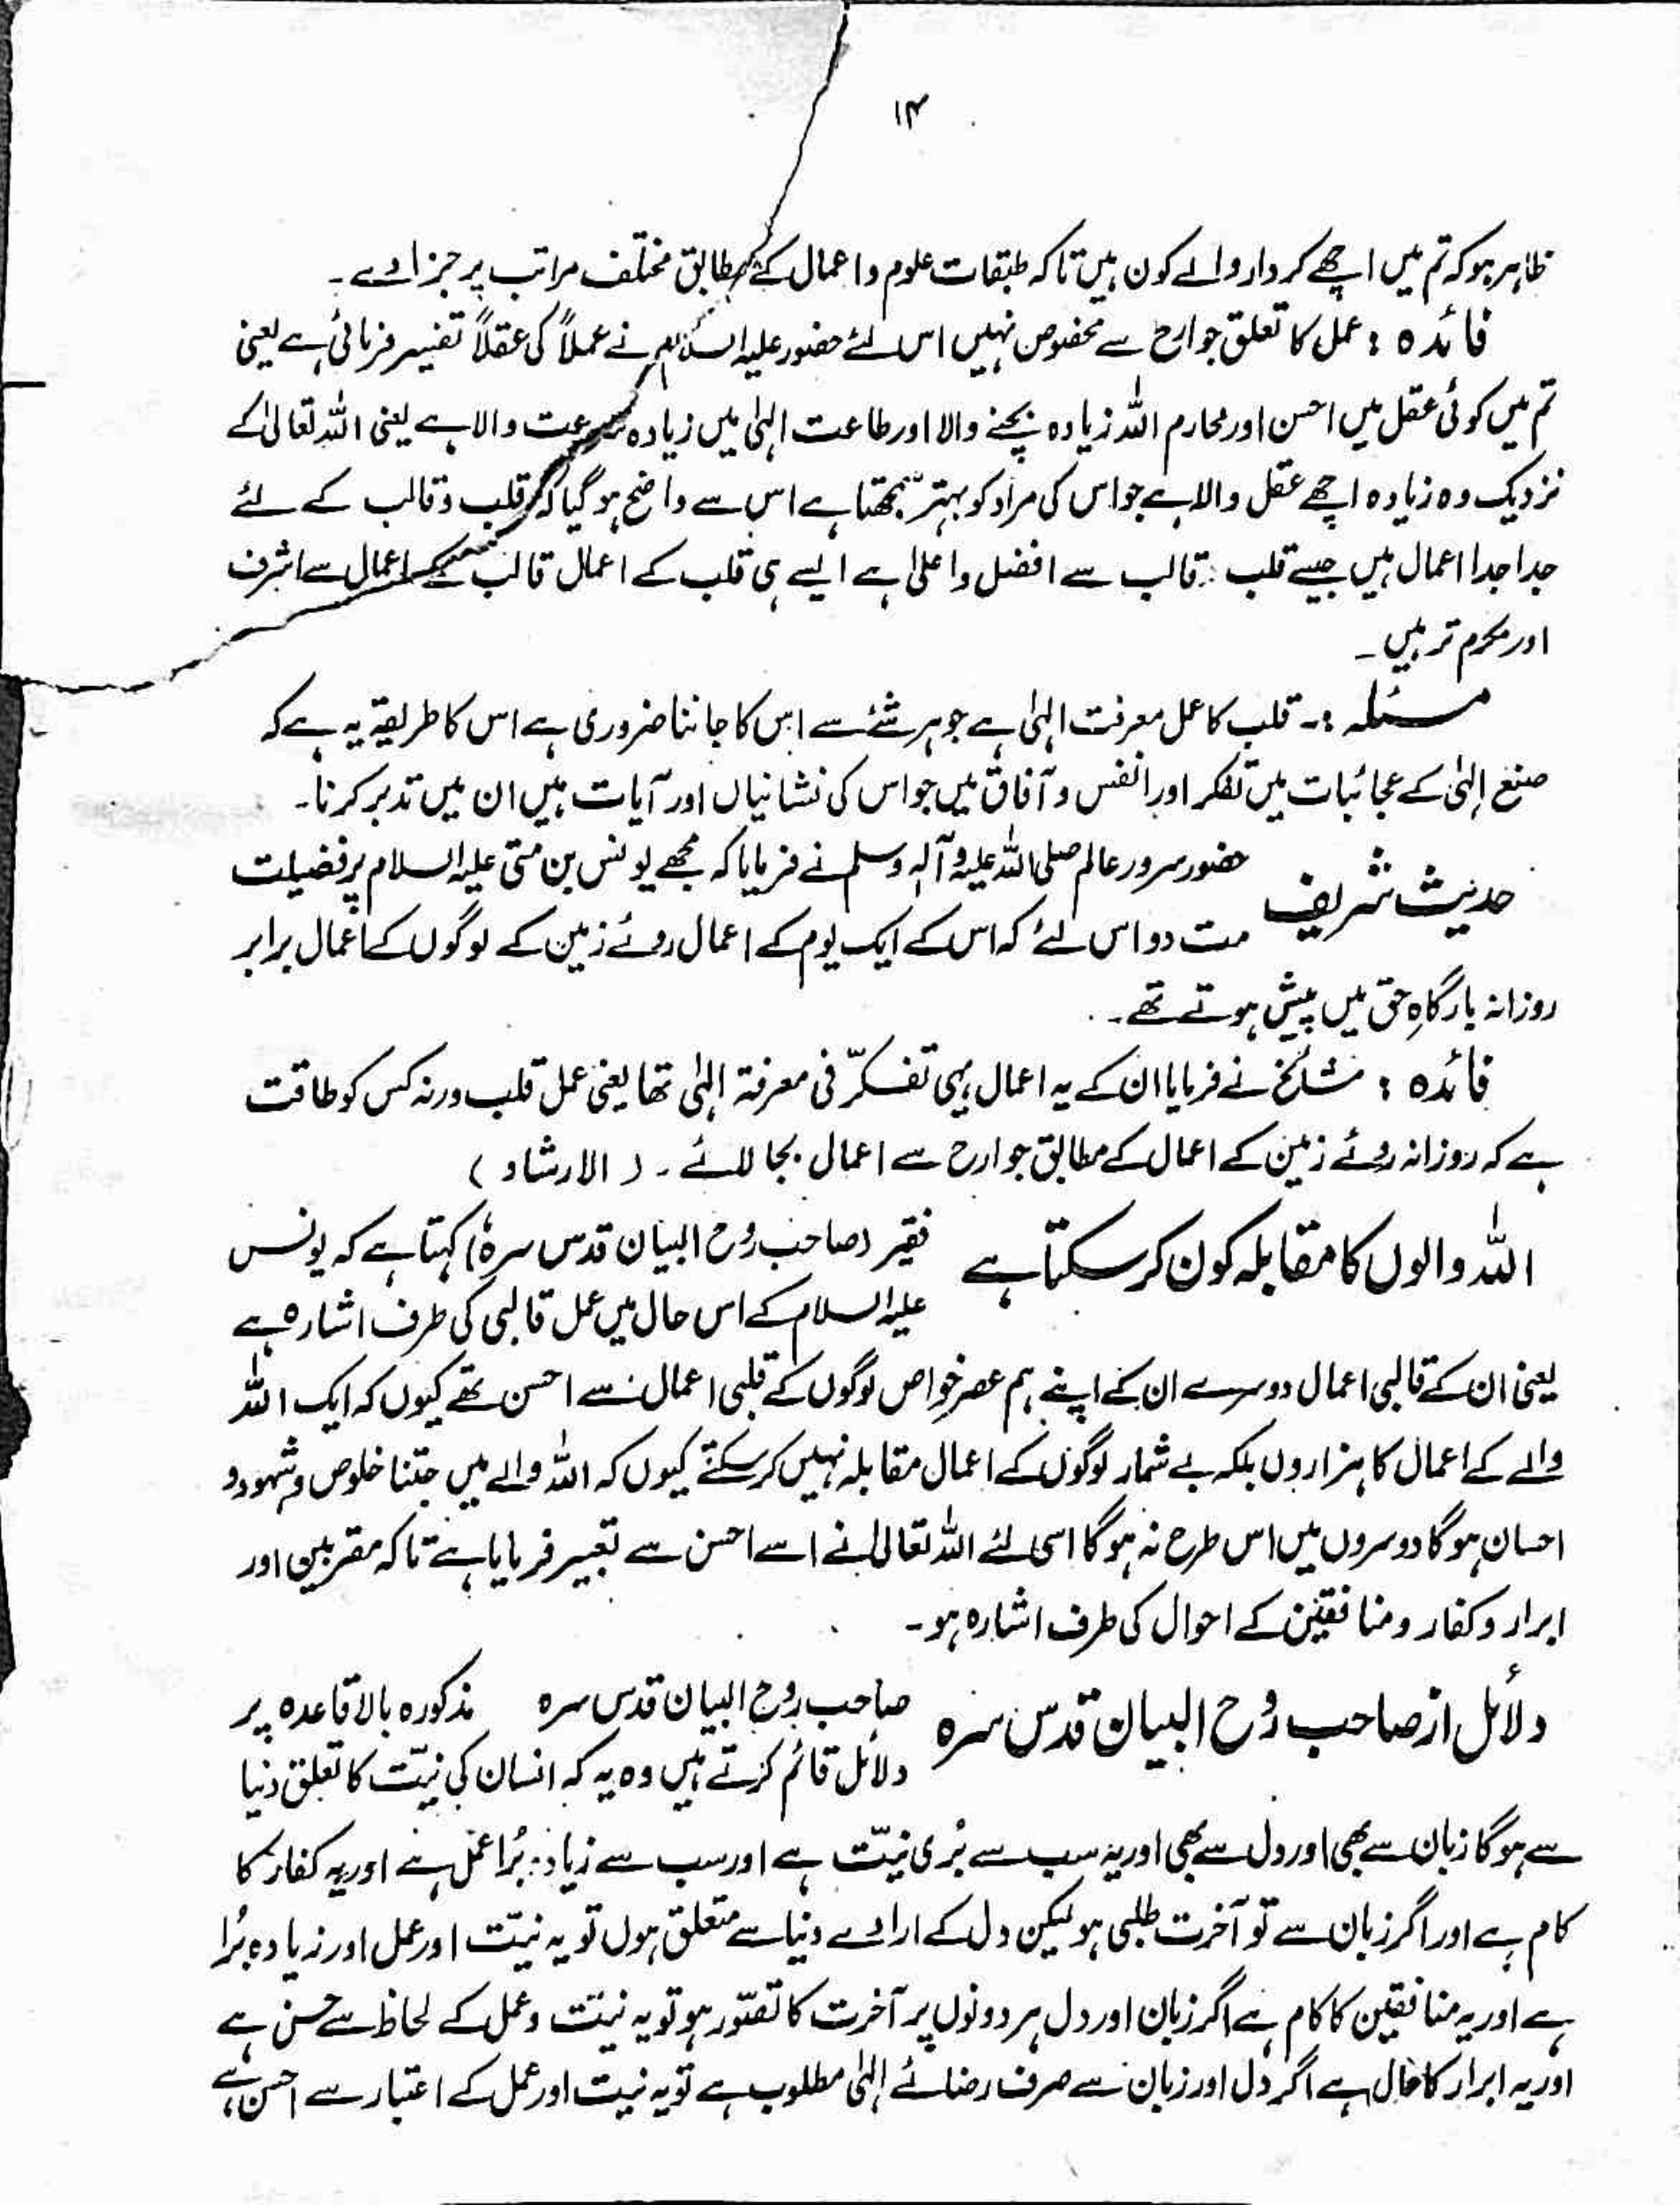 ۱۴
ظاہر ہو کہ تم میں اچھے کردار والے کون ہیں تاکہ طبقات علوم و اعمال کے مطابق مختلف مراتب پر جزا دے ۔
فائدہ : عمل کا تعلق جوارح سے مخصوص نہیں اس لئے حضور علیہ السلام نے عملاً کی عقلاً تفسیر فرمائی ہے یعنی
تم میں کوئی عقل میں احسن اور محارم اللہ زیادہ بچنے والا اور طاعت الٰہی میں زیادہ سرعت والا ہے یعنی اللہ تعالیٰ کے
نزدیک وہ زیادہ اچھے عقل والا ہے جو اس کی مراد کو بہتر سمجھتا ہے اس سے واضح ہو گیا کہ قلب و قالب کے لئے
جدا جدا اعمال ہیں جیسے قلب قالب سے افضل و اعلیٰ ہے ایسے ہی قلب کے اعمال قالب کے اعمال سے اشرف
اور مکرم تر ہیں ۔
مسئلہ :۔ قلب کا عمل معرفت الٰہی ہے جو ہر شئے سے اس کا جاننا ضروری ہے اس کا طریقہ یہ ہے کہ
صنع الٰہی کے عجائبات میں تفکر اور انفس و آفاق میں جو اس کی نشانیاں اور آیات ہیں ان میں تدبر کرنا ۔
حدیث شریف حضور سرور عالم صلی اللہ علیہ وآلہ وسلم نے فرمایا کہ مجھے یونس بن متیٰ علیہ السلام پر فضیلت
مت دو اس لئے کہ اس کے ایک یوم کے اعمال روئے زمین کے لوگوں کے اعمال برابر
روزانہ بارگاہِ حق میں پیش ہوتے تھے ۔
فائدہ : مشائخ نے فرمایا ان کے یہ اعمال یہی تفکّر فی معرفۃ الٰہی تھا یعنی عمل قلب ورنہ کس کو طاقت
ہے کہ روزانہ روئے زمین کے اعمال کے مطابق جوارح سے اعمال بجا لائے ۔ ( الارشاد )
اللہ والوں کا مقابلہ کون کر سکتا ہے فقیر (صاحب روح البیان قدس سرہٗ) کہتا ہے کہ یونس
علیہ السلام کے اس حال میں عمل قالبی کی طرف اشارہ ہے
یعنی ان کے قالبی اعمال دوسرے ان کے اپنے ہم عصر خواص لوگوں کے قلبی اعمال سے احسن تھے کیوں کہ ایک اللہ
والے کے اعمال کا ہزاروں بلکہ بے شمار لوگوں کے اعمال مقابلہ نہیں کر سکتے کیوں کہ اللہ والے میں جتنا خلوص و شہود و
احسان ہوگا دوسروں میں اس طرح نہ ہوگا اسی لئے اللہ تعالیٰ نے اسے احسن سے تعبیر فرمایا ہے تاکہ مقربین اور
ابرار و کفار و منافقین کے احوال کی طرف اشارہ ہو ۔
دلائل از صاحب روح البیان قدس سرہ صاحب روح البیان قدس سرہ مذکورہ بالا قاعدہ پر
دلائل قائم کرتے ہیں وہ یہ کہ انسان کی نیّت کا تعلق دنیا
سے ہوگا زبان سے بھی اور دل سے بھی اور یہ سب سے بُری نیّت ہے اور سب سے زیادہ بُرا عمل ہے اور یہ کفار کا
کام ہے اور اگر زبان سے تو آخرت طلبی ہو لیکن دل کے ارادے دنیا سے متعلق ہوں تو یہ نیّت اور عمل اور زیادہ بُرا
ہے اور یہ منافقین کا کام ہے اگر زبان اور دل ہر دونوں پر آخرت کا تصوّر ہو تو یہ نیّت و عمل کے لحاظ سے حسن ہے
اور یہ ابرار کا حال ہے اگر دل اور زبان سے صرف رضائے الٰہی مطلوب ہے تو یہ نیت اور عمل کے اعتبار سے احسن ہے